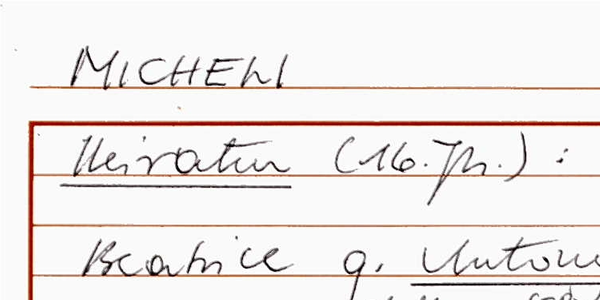 MICHELI
Heiraten (16. Jh.) :
Beatrice q. Antoni